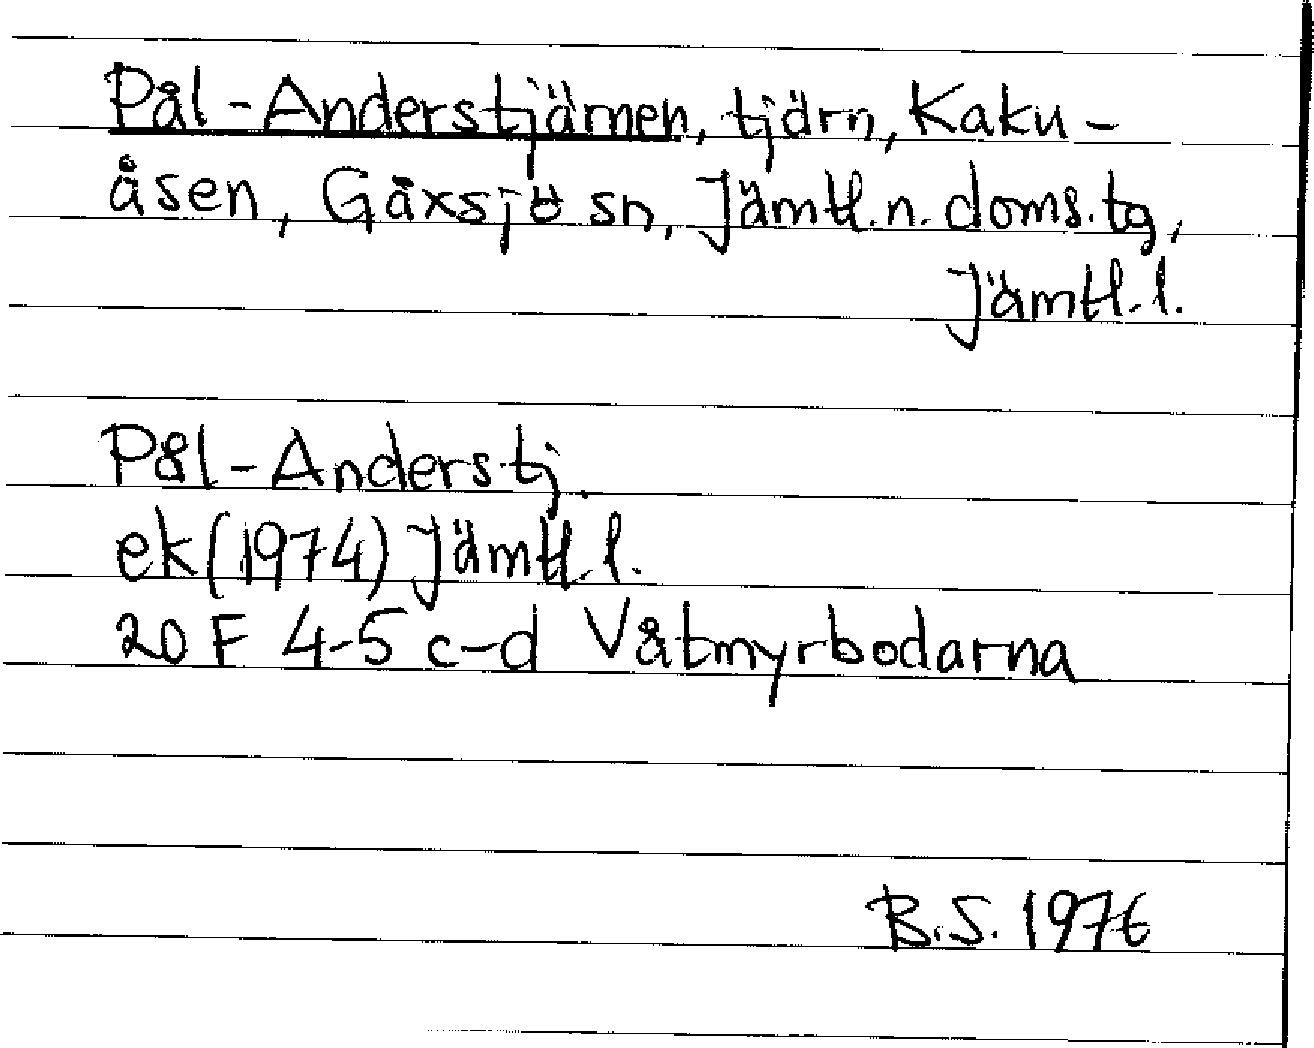 Pål-Anderstjärnen, tjärn, Kaku-
åsen, Gåxsjö sn, Jämtl.n.doms.tg,
Jämtl.l.
Pål-Anderstj
ek(1974) Jämtl.l.
20 F 4-5 c-d Våtmyrbodarna
B.S. 1976